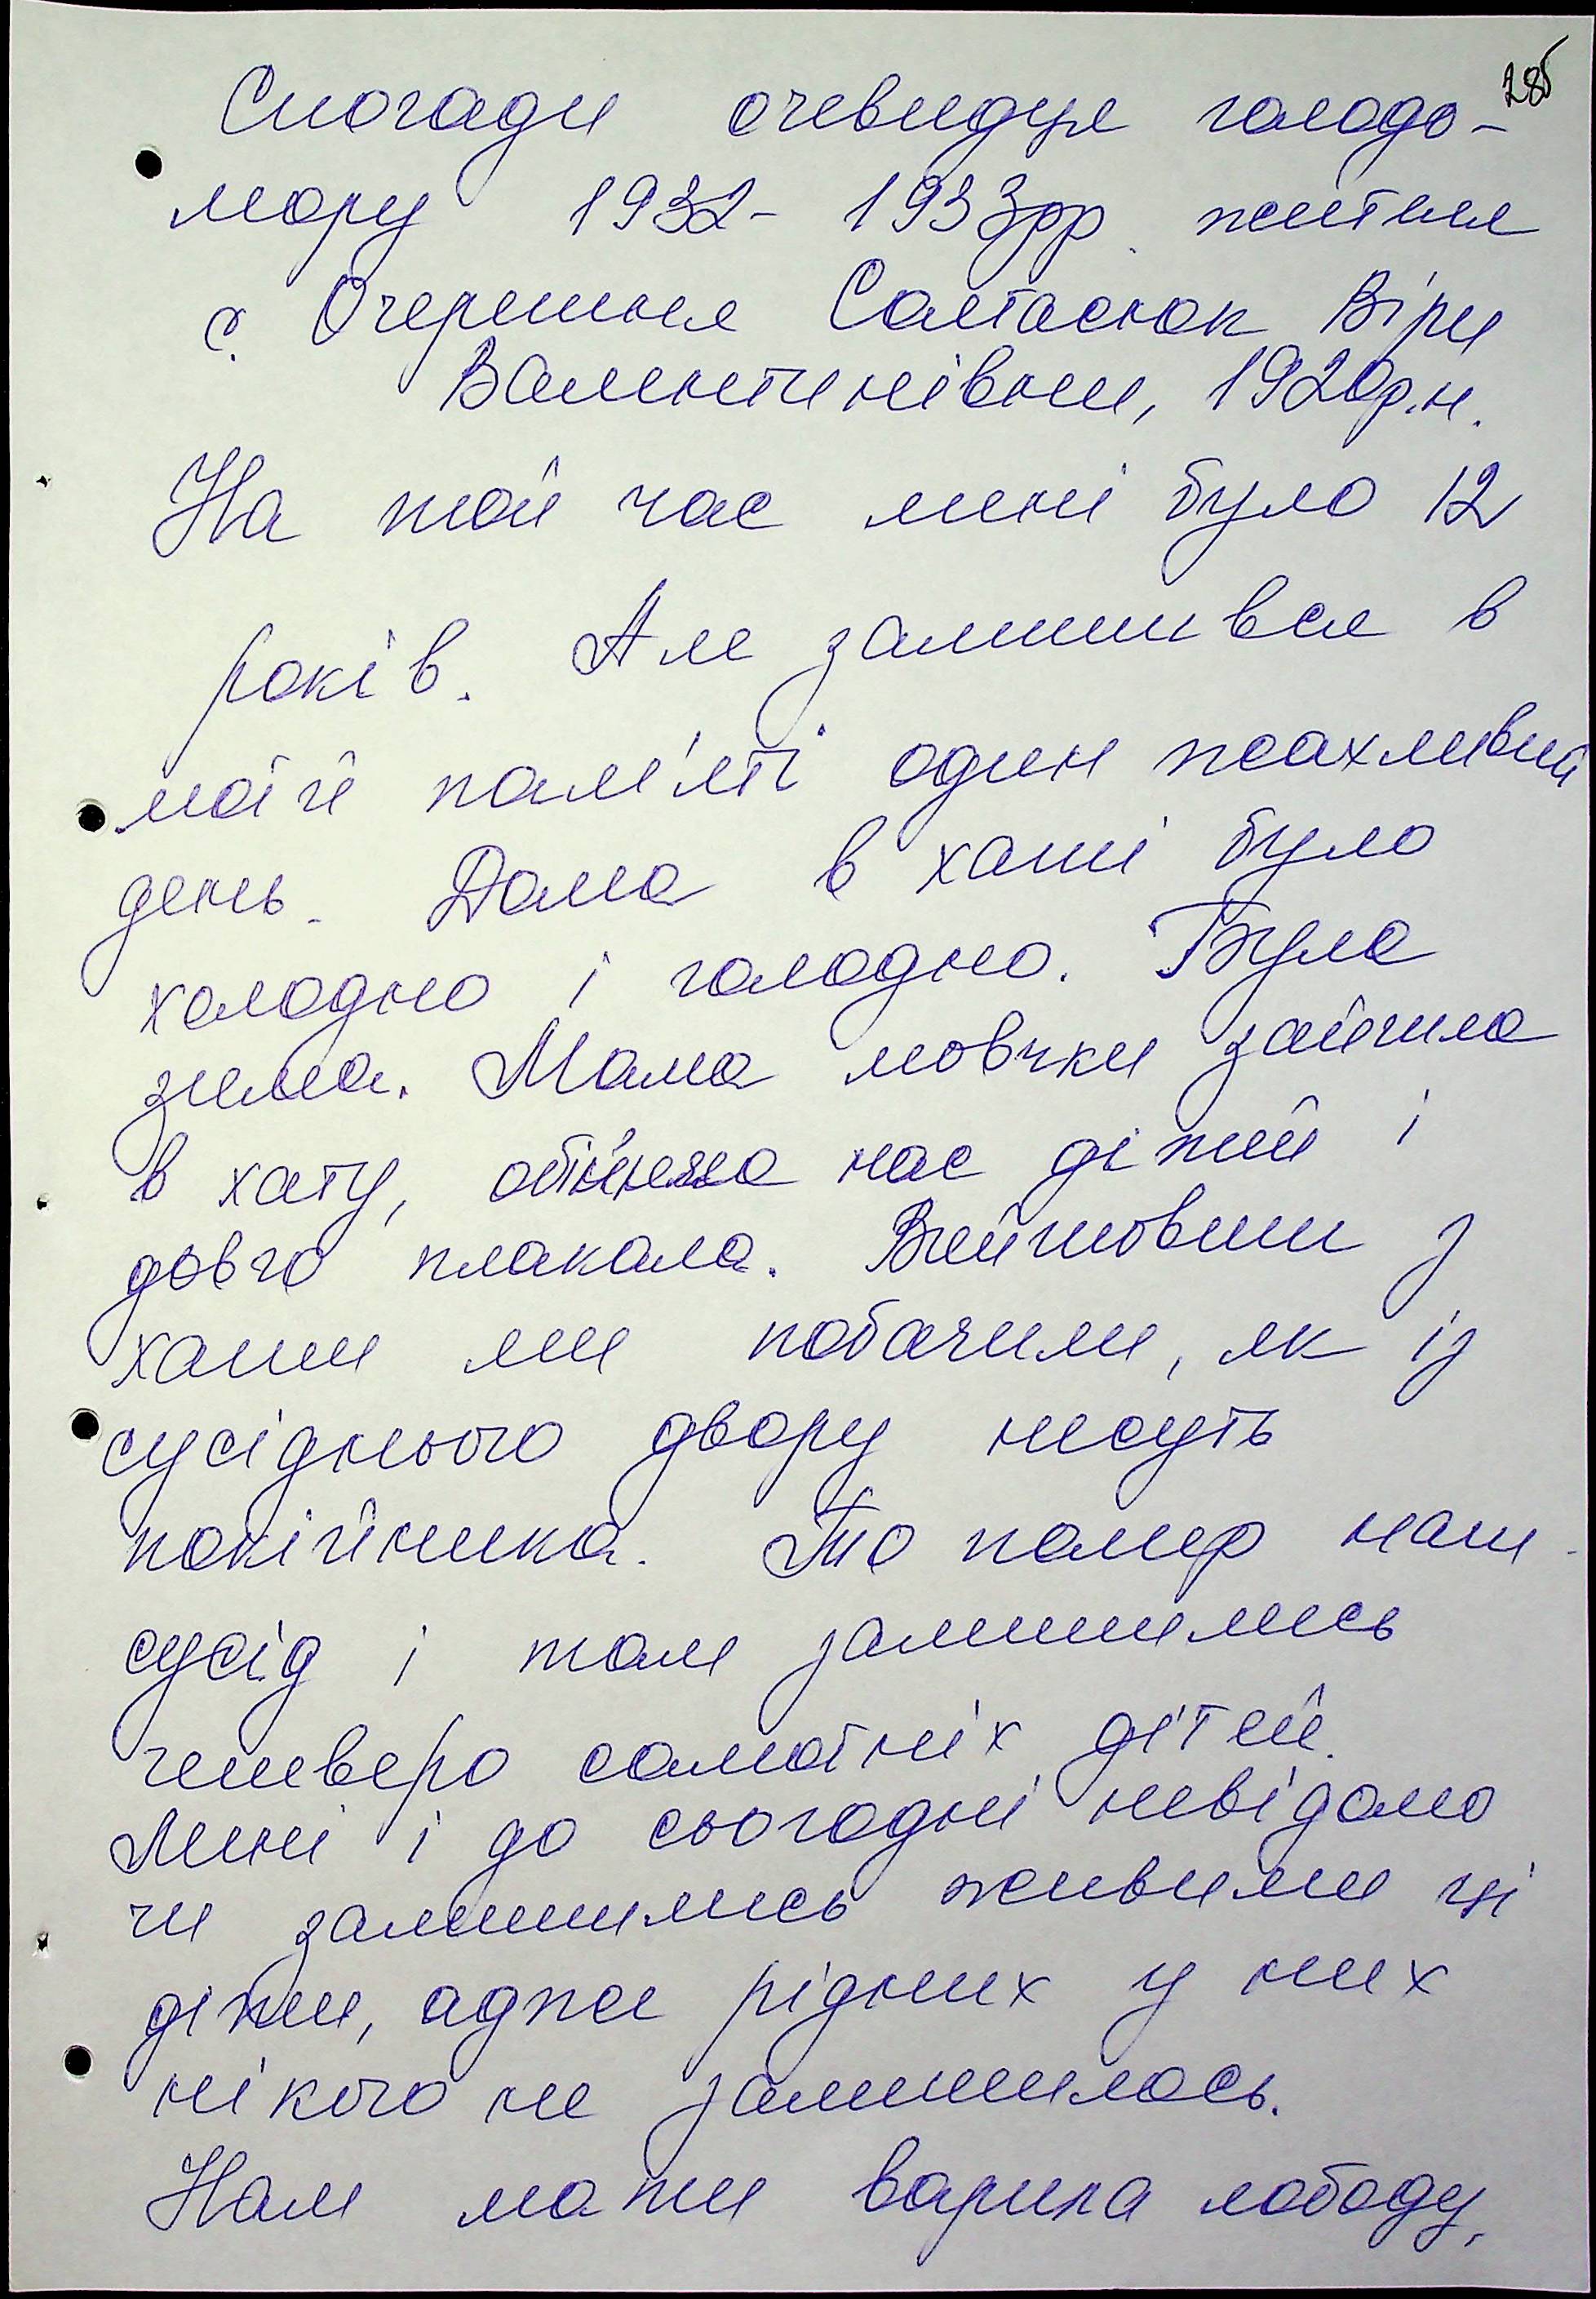 285
Спогади очевидця голодо-
мору 1932-1933рр. жителя
с. Очеретня Солтасюк Віри
Валентинівни, 1920р.н.
На той час мені було 12
років. Але залишився в
моїй пам'яті один жахливий
день. Дома в хаті було
холодно і голодно. Була
зима. Мама мовчки зайшла
в хату, обійняла нас дітей і
довго плакала. Вийшовши з
хати ми побачили, як із
сусіднього двору несуть
покійника. То помер наш
сусід і там залишились
четверо самотніх дітей.
Мені і до сьогодні невідомо
чи залишились живими ці
діти, адже рідних у них
нікого не залишилось.
Нам мати варила лободу,